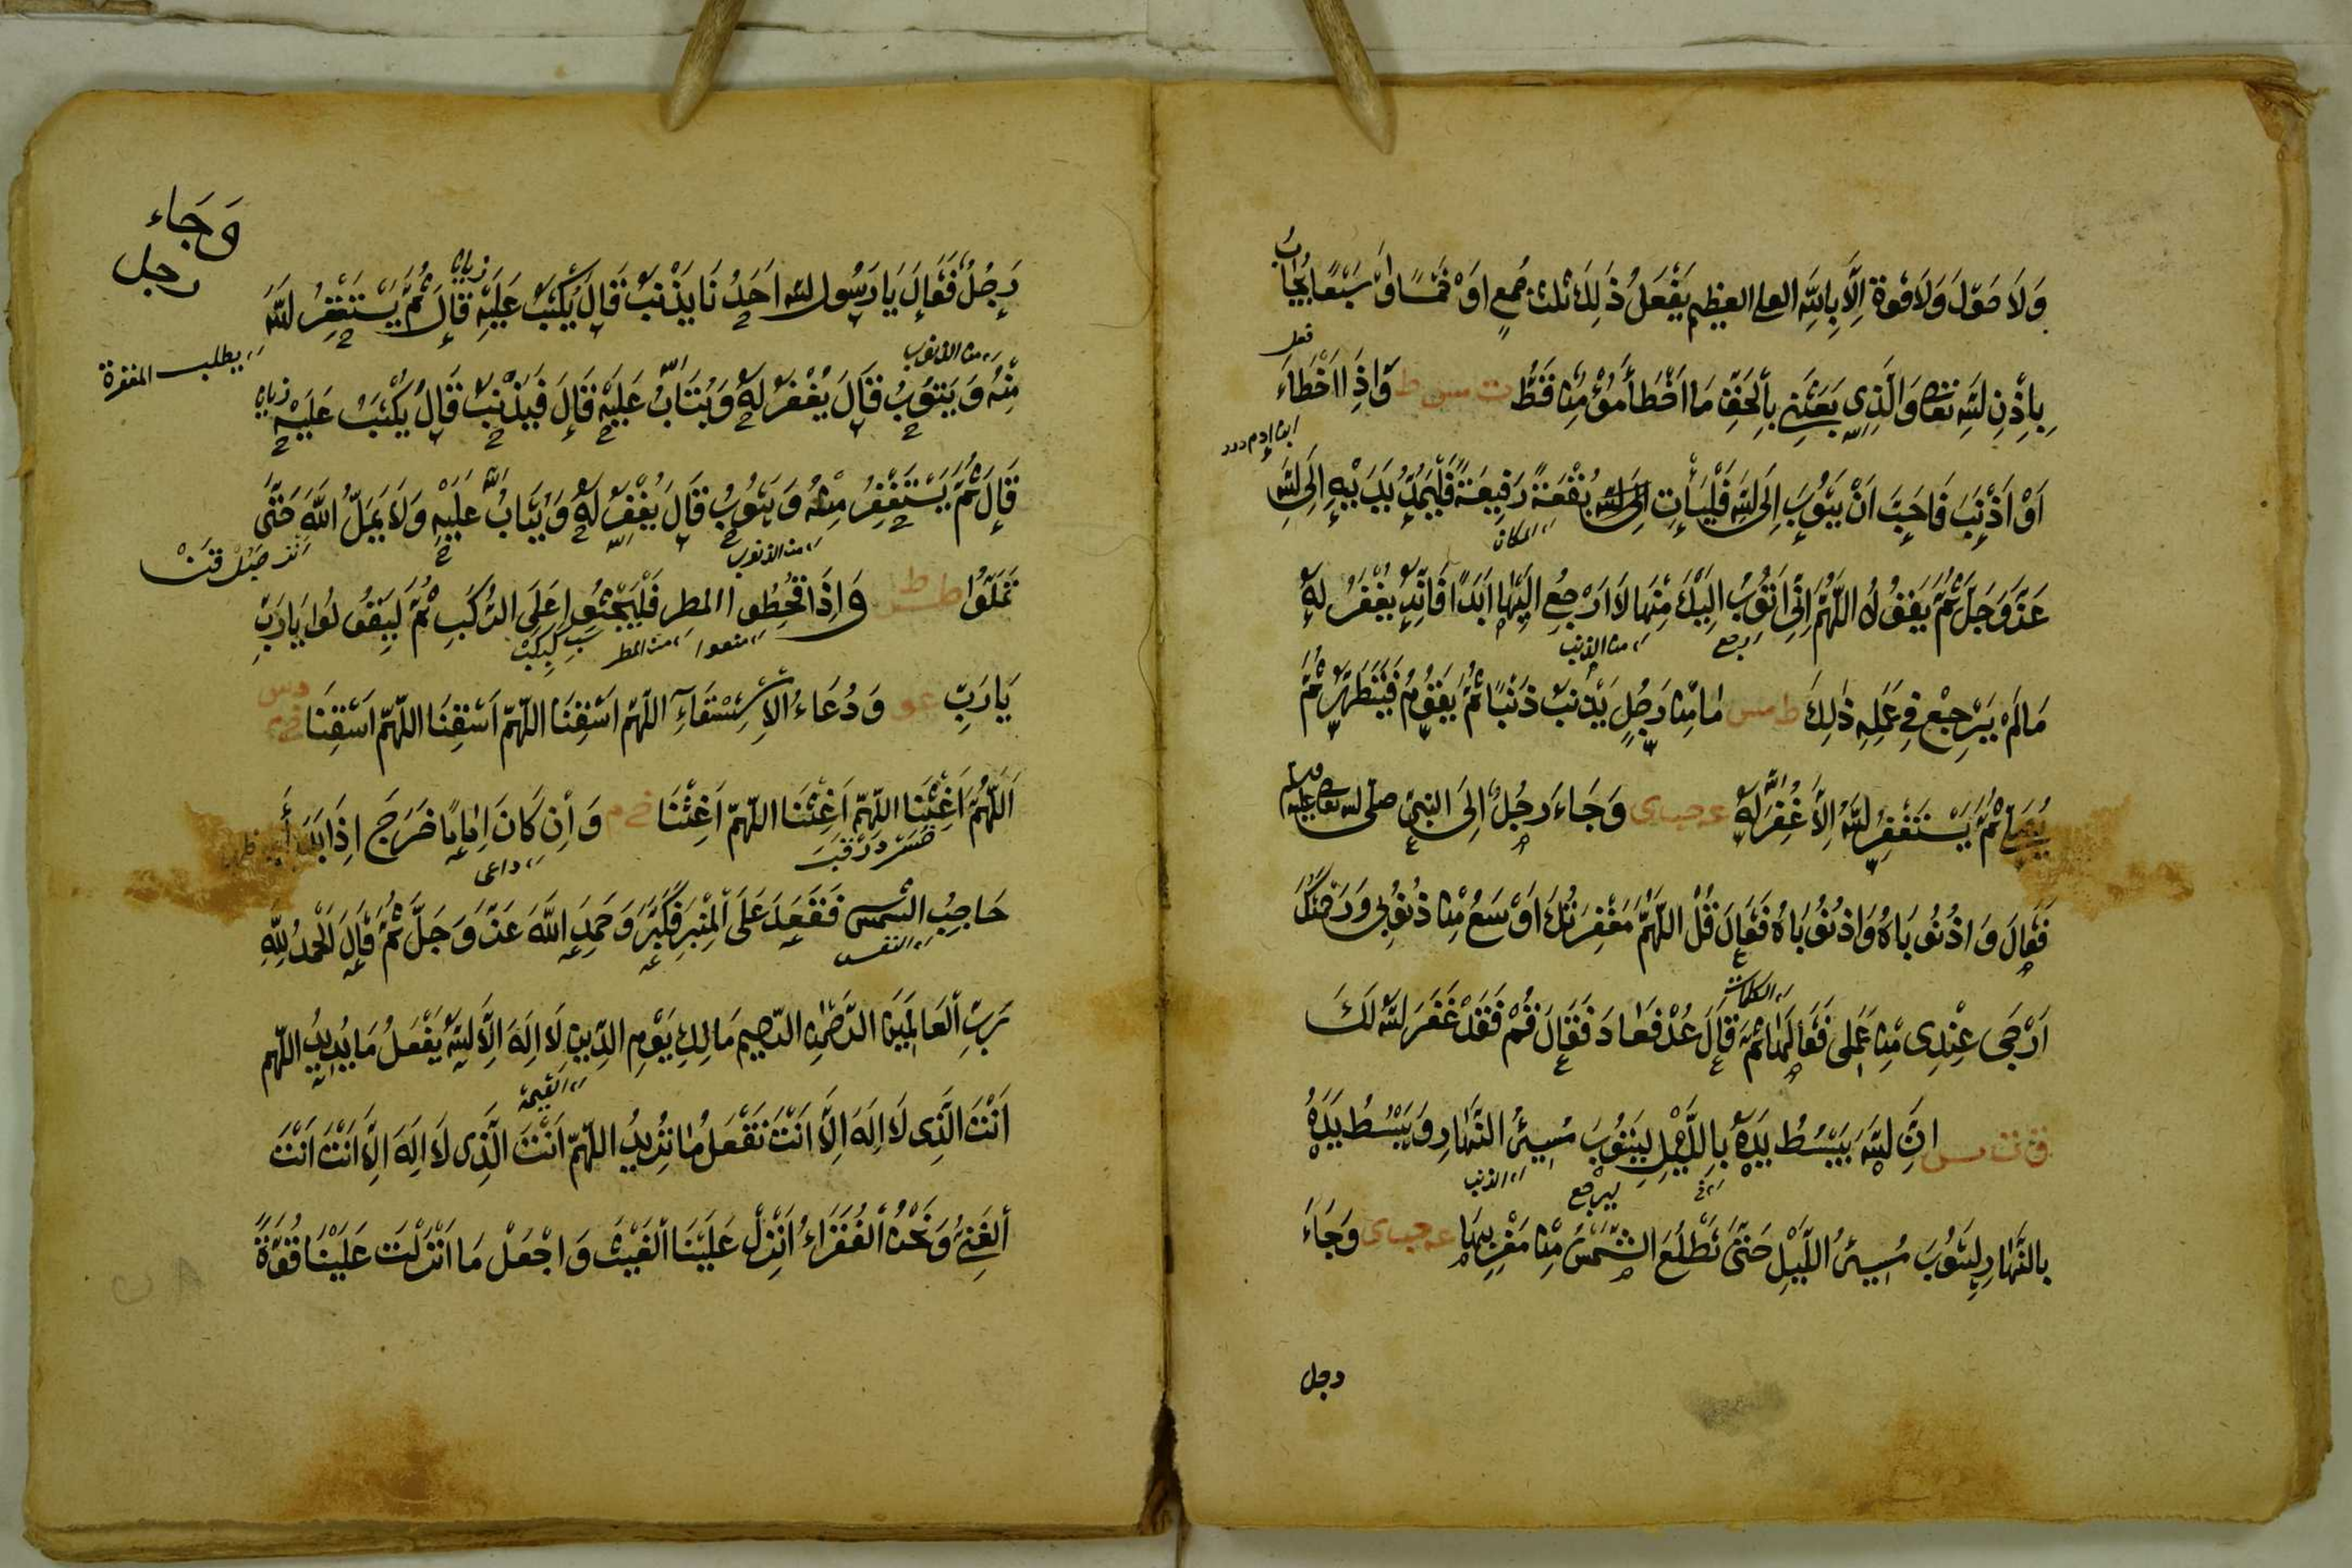 وَلَا حَوْلَ وَلَا قُوَّةَ اِلَّا بِاللّٰهِ العلى العظيم يَفْعَلُ ذٰلِكَ ثلٰث جُمَعٍ اَوْ خَمْسًا اَوْ سَبْعًا يُجَابُ
بِاِذْنِ اللّٰهِ تعالى وَالَّذِى بَعَثَنِى بِالْحَقِّ مَا اَخْطَأَ مُؤْمِنًا قَطُّ ت مس ط وَاِذَا اَخْطَاءَ
اَوْ اَذْنَبَ فَاَحَبَّ اَنْ يَتُوبَ اِلَى اللّٰهِ فَلْيَأْتِ بُقْعَةً رَفِيعَةً فَلْيَمُدَّ يَدَيْهِ اِلَى اللّٰهِ
المكان
عَزَّ وَجَلَّ ثُمَّ يَقُولُ اللّٰهُمَّ اِنِّى اَتُوبُ اِلَيْكَ مِنْهَا لَا اَرْجِعُ اِلَيْهَا اَبَدًا فَاِنَّهُ يُغْفَرُ لَهُ
من الذنب
مَالَمْ يَرْجِعْ فِى عَمَلِهِ ذٰلِكَ ط مس مَا مِنْ رَجُلٍ يُذْنِبُ ذَنْبًا ثُمَّ يَقُومُ فَيَتَطَهَّرُ ثُمَّ
يُصَلِّى ثُمَّ يَسْتَغْفِرُ اللّٰهَ اِلَّا غُفِرَ لَهُ عه حب ى وَجَاءَ رَجُلٌ اِلَى النَّبِىِّ صلى الله تعالى عليه وسلم
فَقَالَ وَاذُنُوبَاهُ وَاذُنُوبَاهُ فَقَالَ قُلْ اللّٰهُمَّ مَغْفِرَتُكَ اَوْسَعُ مِنْ ذُنُوبِى وَرَحْمَتُكَ
اَرْجَى عِنْدِى مِنْ عَمَلِى فَقَالَهَا ثُمَّ قَالَ عُدْ فَعَادَ فَقَالَ قُمْ فَقَدْ غَفَرَ اللّٰهُ لَكَ
الكلمات
اِنَّ اللّٰهَ يَبْسُطُ يَدَهُ بِاللَّيْلِ لِيَتُوبَ مُسِىءُ النَّهَارِ وَيَبْسُطُ يَدَهُ
ليرجع الذنب
بِالنَّهَارِ لِيَتُوبَ مُسِىءُ اللَّيْلِ حَتّٰى تَطْلُعَ الشَّمْسُ مِنْ مَغْرِبِهَا عه حب ى وَجَاءَ
رجل
وَجَاء
رجل
رَجُلٌ فَقَالَ يَا رَسُولَ اللّٰهِ اَحَدُنَا يُذْنِبُ قَالَ يُكْتَبُ عَلَيْهِ قَالَ ثُمَّ يَسْتَغْفِرُ اللّٰهَ
يطلب المغفرة
من الذنوب
مِنْهُ وَيَتُوبُ قَالَ يُغْفَرُ لَهُ وَيُتَابُ عَلَيْهِ قَالَ فَيُذْنِبُ قَالَ يُكْتَبُ عَلَيْهِ
قَالَ ثُمَّ يَسْتَغْفِرُ مِنْهُ وَيَتُوبُ قَالَ يُغْفَرُ لَهُ وَيُتَابُ عَلَيْهِ وَلَا يَمَلُّ اللّٰهُ حَتّٰى
من الذنوب
تَمَلُّوا ط طس وَاِذَا قُحِطُوا المطر فَلْيَجْثُوا عَلَى الرُّكَبِ ثُمَّ لِيَقُولُوا يَارَبِّ
منعوا من المطر
يَارَبِّ عو وَدُعَاءُ الْاِسْتِسْقَاءِ اللّٰهُمَّ اسْقِنَا اللّٰهُمَّ اَسْقِنَا اللّٰهُمَّ اَسْقِنَا
اَللّٰهُمَّ اَغِثْنَا اللّٰهُمَّ اَغِثْنَا اللّٰهُمَّ اَغِثْنَا خ م وَاِنْ كَانَ اِمَامًا خَرَجَ اِذَا بَدَا
داعى
حَاجِبُ الشَّمْسِ فَقَعَدَ عَلَى الْمِنْبَرِ فَكَبَّرَ وَحَمِدَ اللّٰهَ عَزَّ وَجَلَّ ثُمَّ قَالَ الْحَمْدُ لِلّٰهِ
رَبِّ الْعَالَمِينَ الرَّحْمٰنِ الرَّحِيمِ مَالِكِ يَوْمِ الدِّينِ لَا اِلٰهَ اِلَّا اللّٰهُ يَفْعَلُ مَا يُرِيدُ اللّٰهُمَّ
القيمة
اَنْتَ الَّذِى لَا اِلٰهَ اِلَّا اَنْتَ تَفْعَلُ مَا تُرِيدُ اللّٰهُمَّ اَنْتَ الَّذِى لَا اِلٰهَ اِلَّا اَنْتَ اَنْتَ
الْغَنِىُّ وَنَحْنُ الْفُقَرَاءُ اَنْزِلْ عَلَيْنَا الْغَيْثَ وَاجْعَلْ مَا اَنْزَلْتَ عَلَيْنَا قُوَّةً